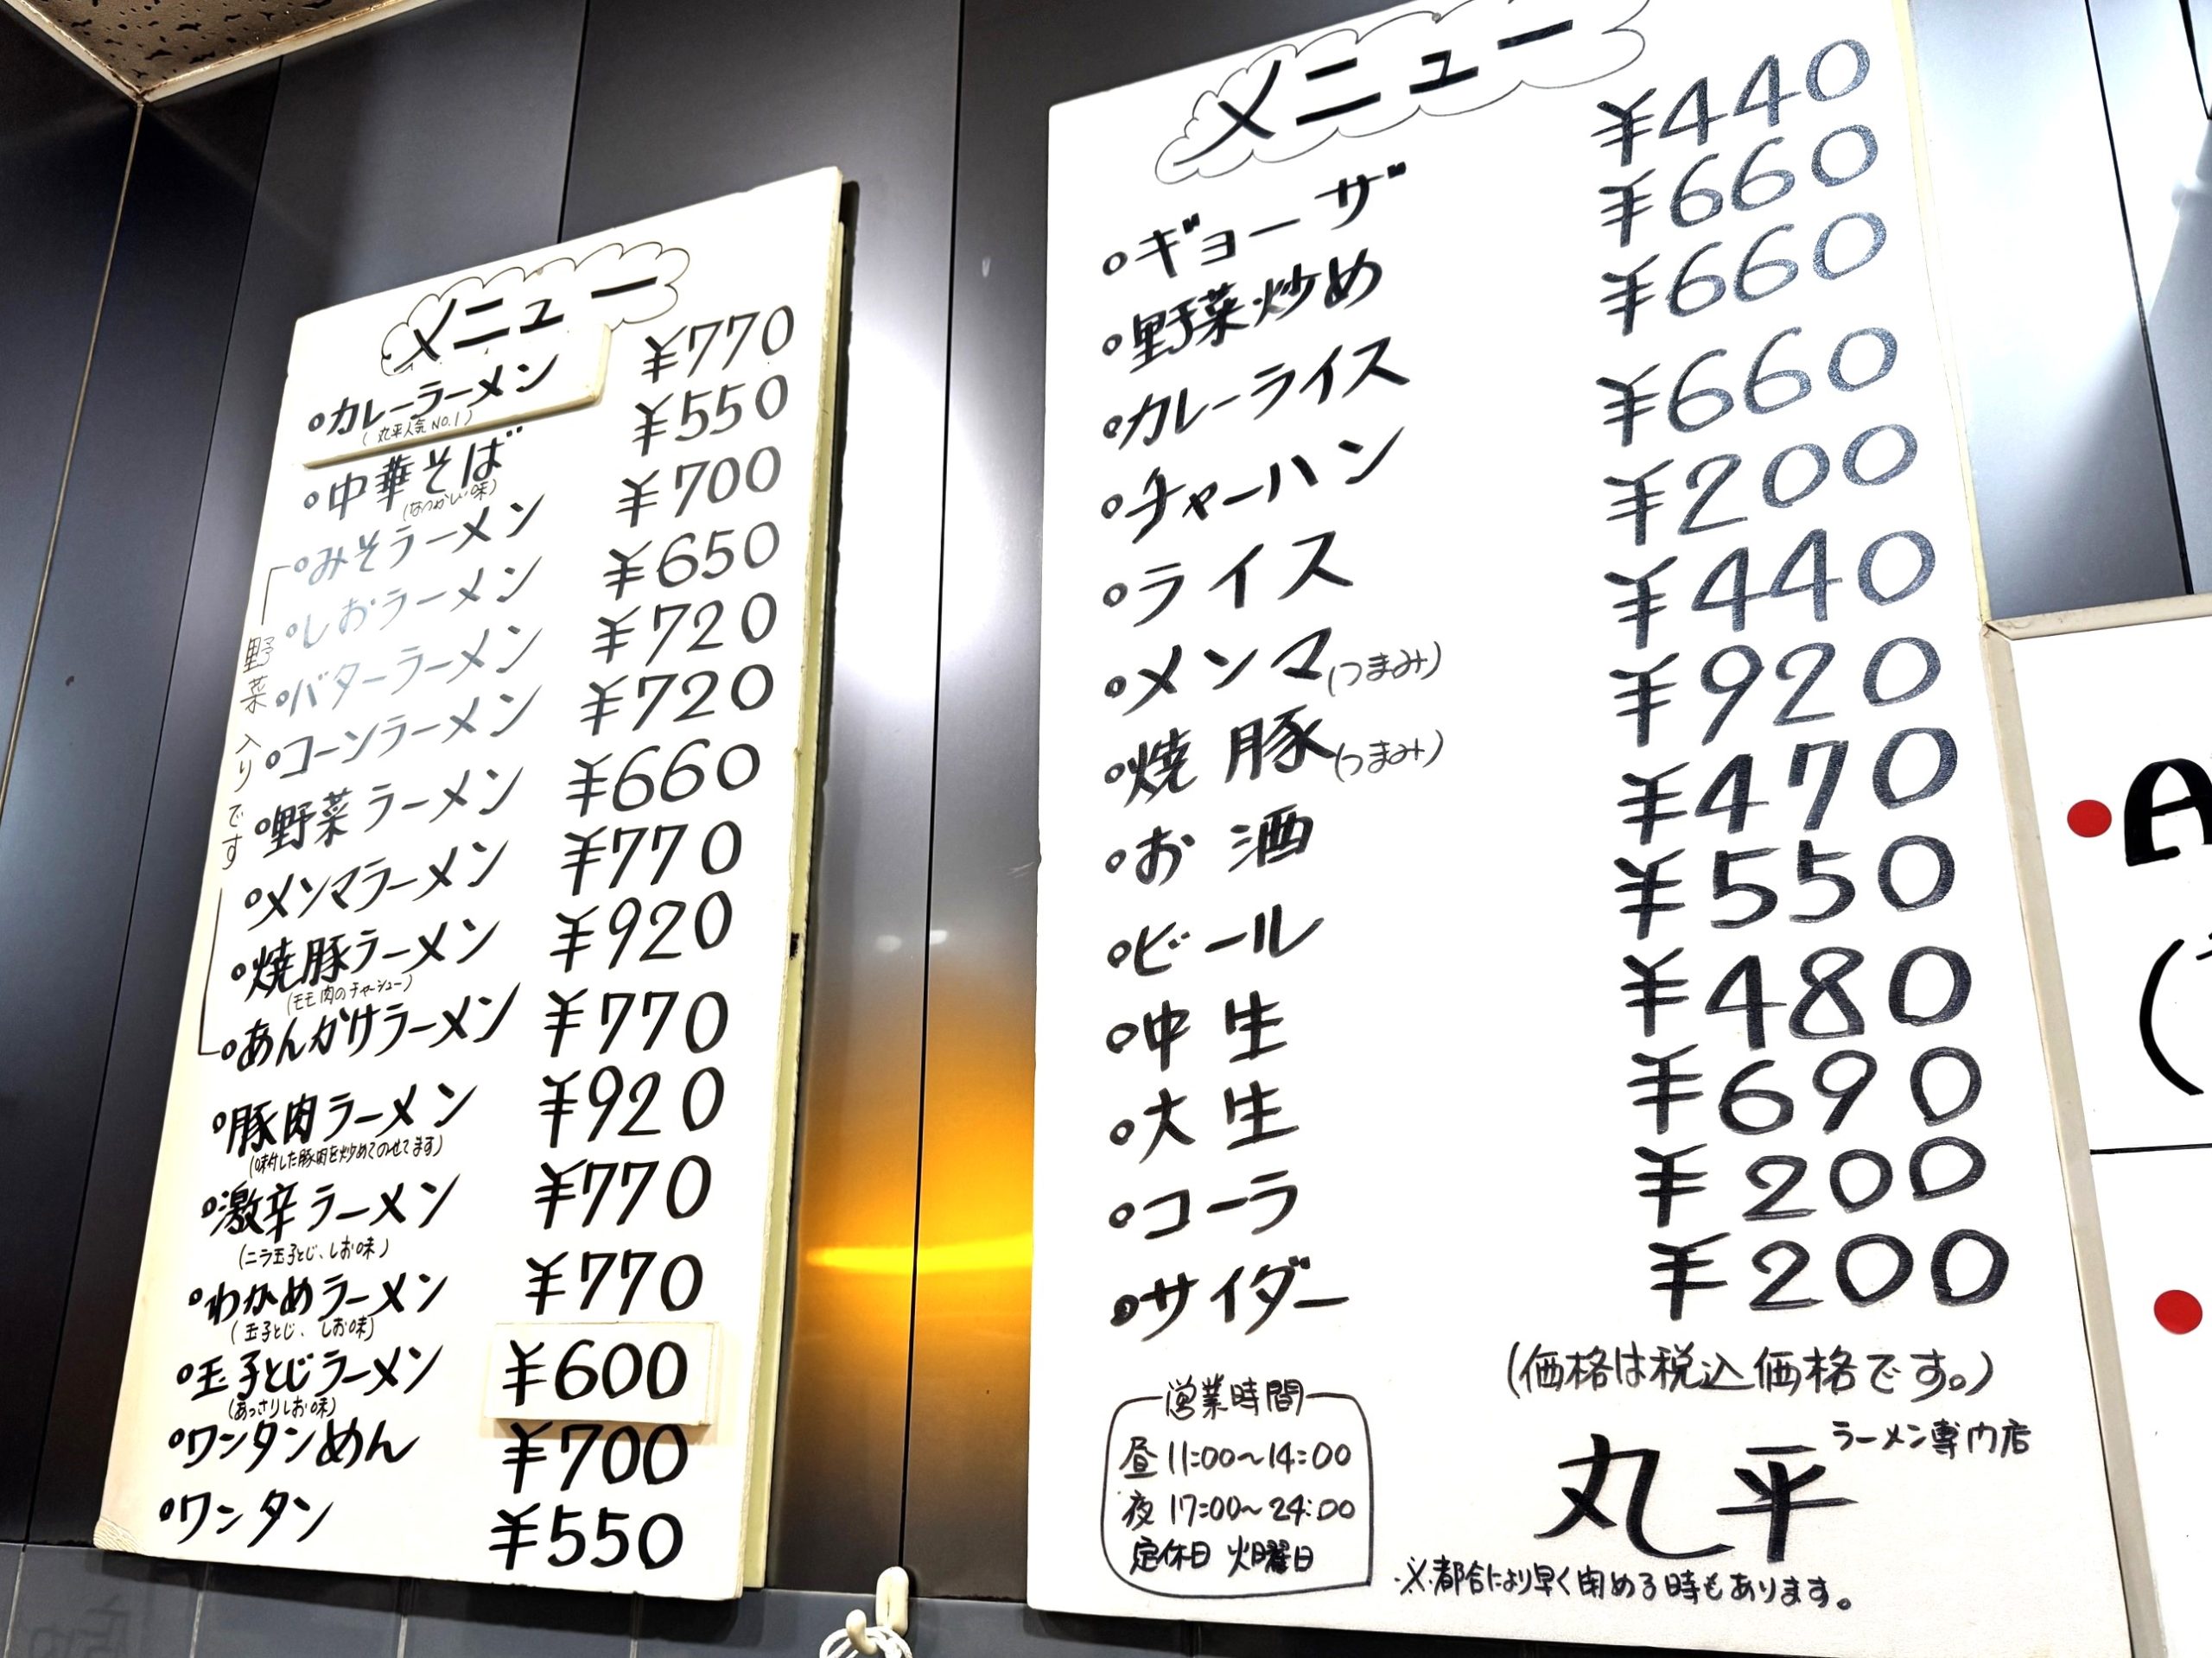 メニュー
・カレーラーメン ¥770
(丸平人気NO.1)
・中華そば ¥550
(なつかしい味)
・みそラーメン ¥700
・しおラーメン ¥650
・バターラーメン ¥720
・コーンラーメン ¥720
・野菜ラーメン ¥660
・メンマラーメン ¥770
・焼豚ラーメン ¥920
(モモ肉のチャーシュー)
・あんかけラーメン ¥770
野菜入りです
・豚肉ラーメン ¥920
(味付した豚肉を炒めてのせてます)
・激辛ラーメン ¥770
(ニラ玉子とじ、しお味)
・わかめラーメン ¥770
(玉子とじ、しお味)
・玉子とじラーメン ¥600
(あっさりしお味)
・ワンタンめん ¥700
・ワンタン ¥550
メニュー
・ギョーザ ¥440
・野菜炒め ¥660
・カレーライス ¥660
・チャーハン ¥660
・ライス ¥200
・メンマ(つまみ) ¥440
・焼豚(つまみ) ¥920
・お酒 ¥470
・ビール ¥550
・中生 ¥480
・大生 ¥690
・コーラ ¥200
・サイダー ¥200
(価格は税込価格です。)
営業時間
昼 11:00~14:00
夜 17:00~24:00
定休日 火曜日
丸平 ラーメン専門店
※都合により早く閉める時もあります。
A